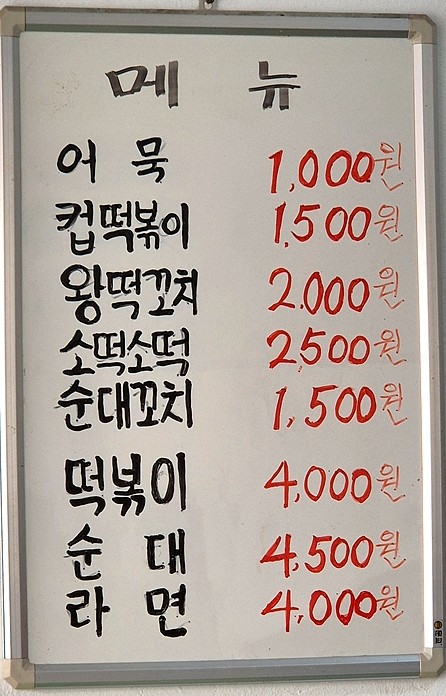 메 뉴
어 묵 1,000원
컵떡볶이 1,500원
왕떡꼬치 2.000원
소떡소떡 2,500원
순대꼬치 1,500원
떡볶이 4,000원
순 대 4,500원
라 면 4,000원